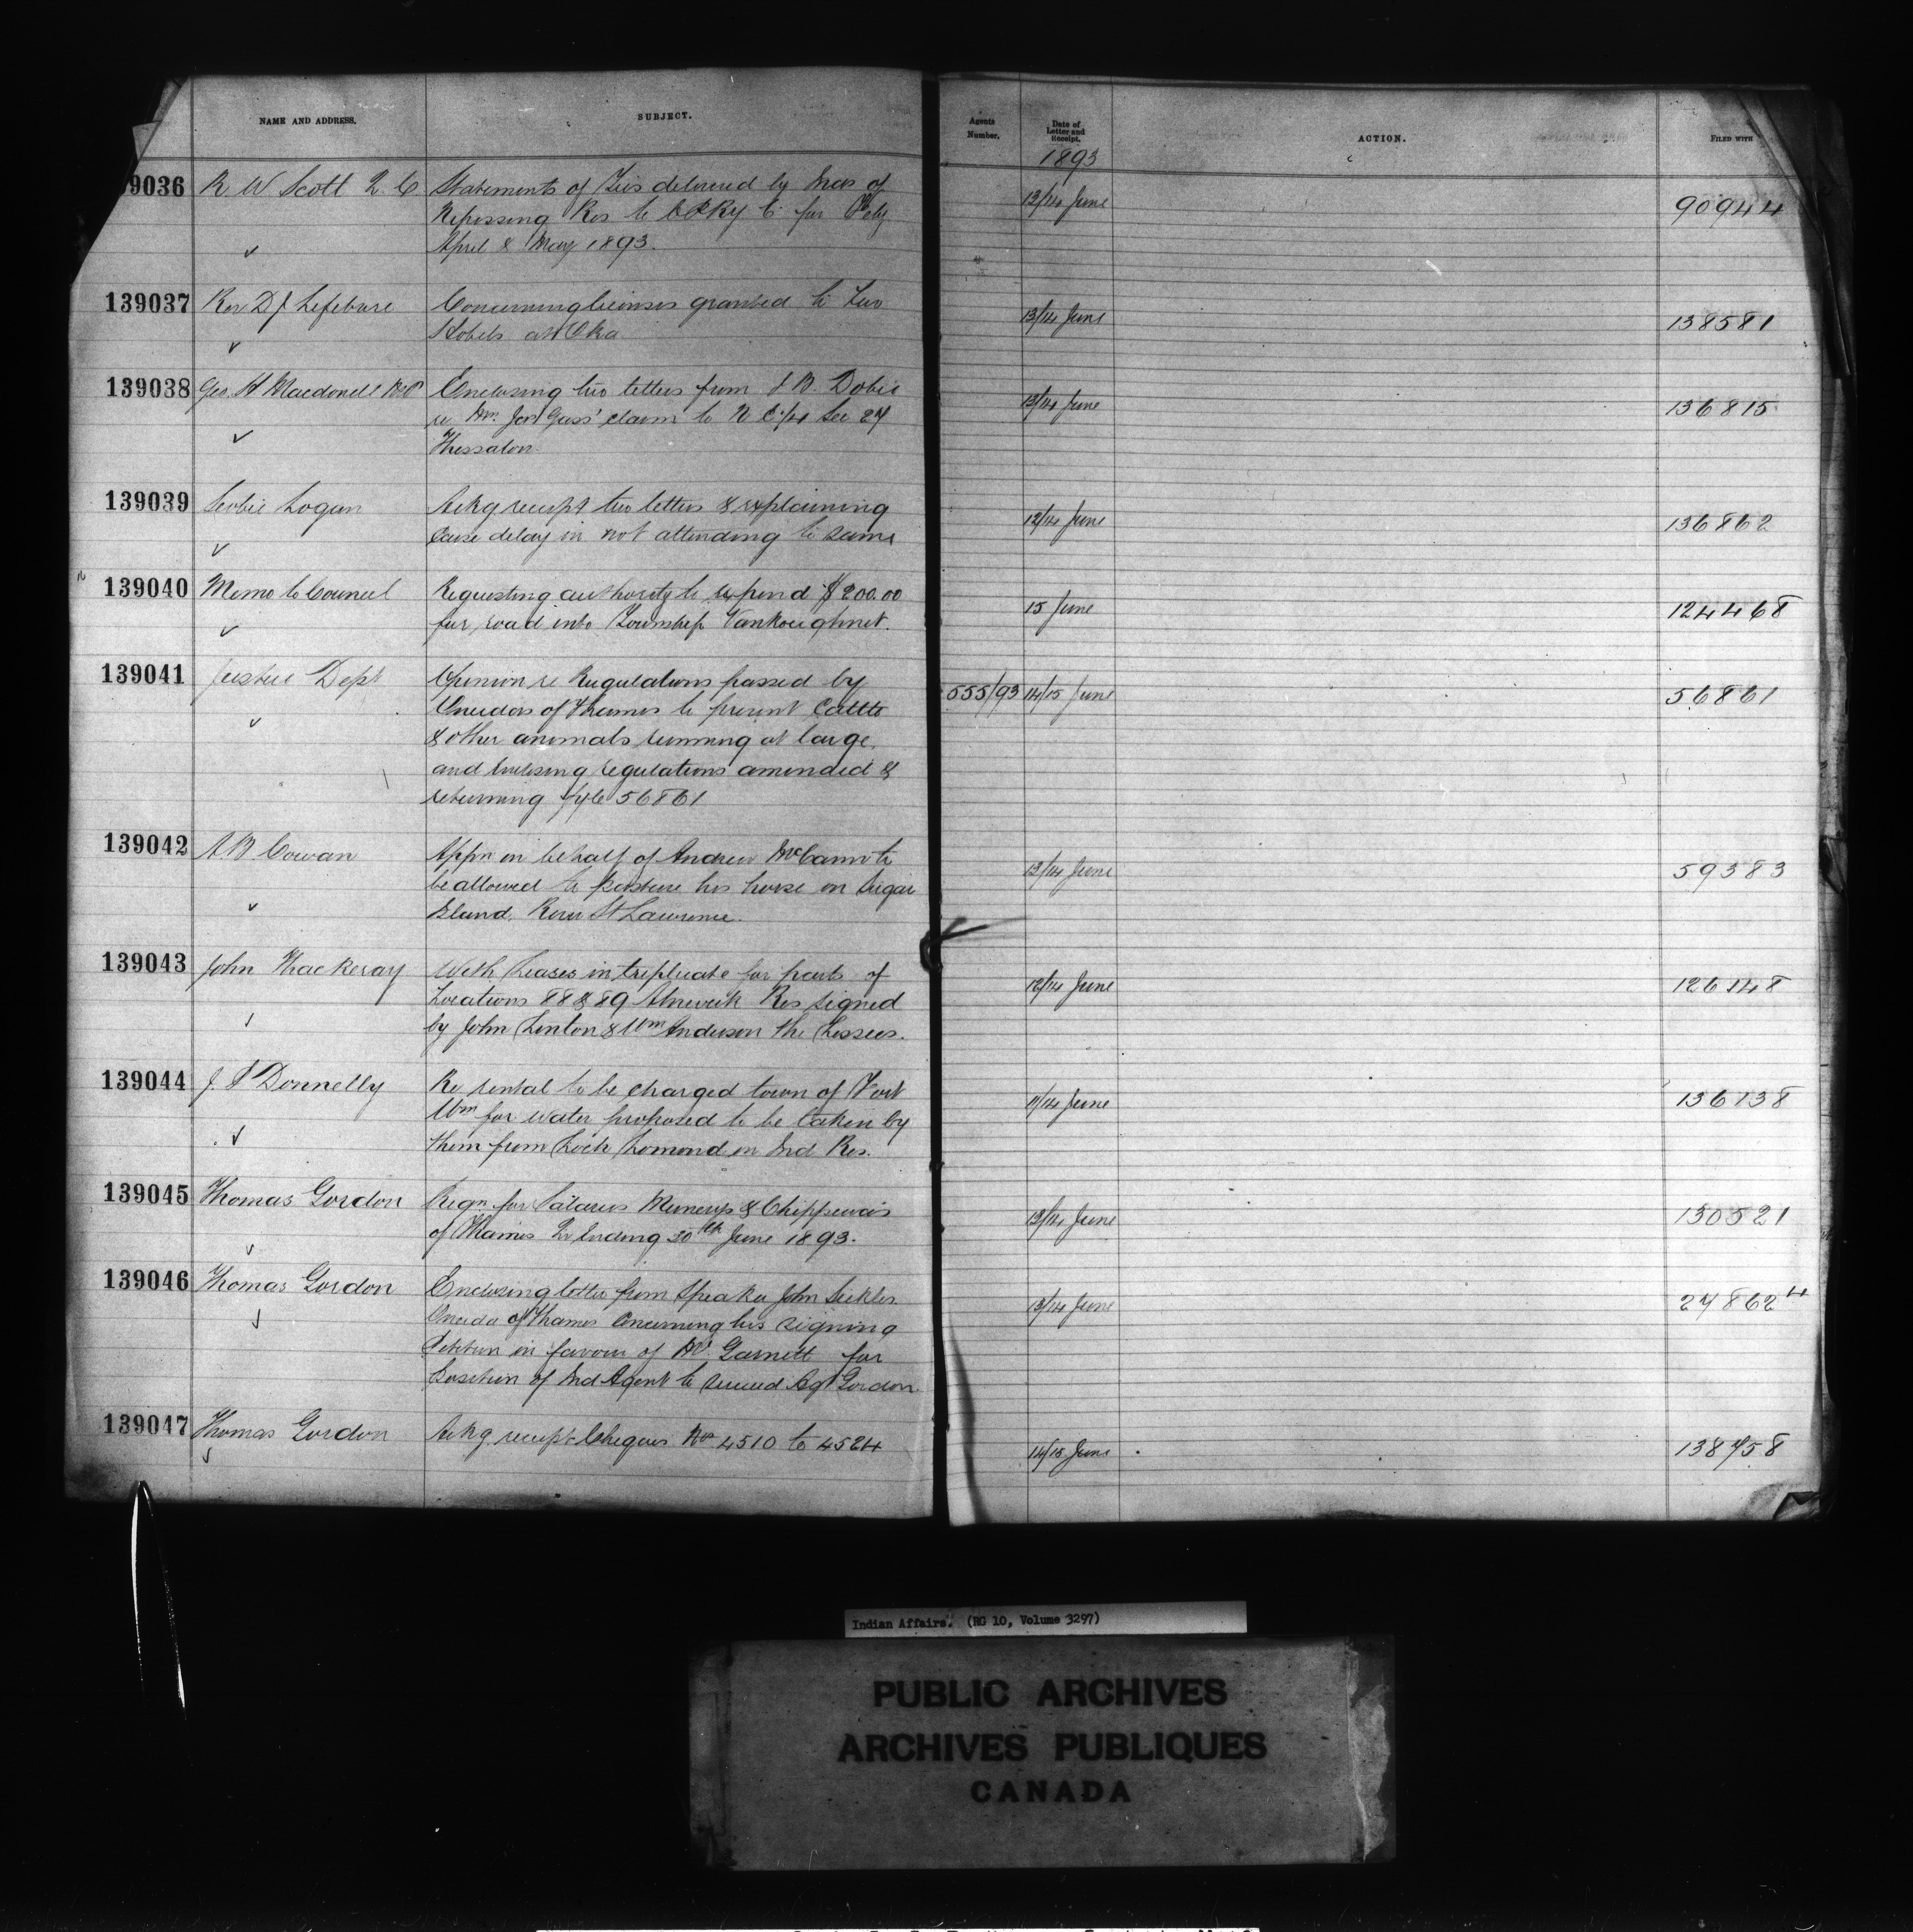 NAME AND ADDRESS.
SUBJECT.
Agents
Number.
Date of
Letter and
Receipt.
1893
ACTION.
FILED WITH
9036 R. W Scott Q. C. Statements of Ties delivered by Inds of
Nipissing Res to C P Ry Co for Feby
April & May 1893.
13/14 June
90944
139037 Rev D J Lefebvre Concerning licenses granted to two
Hotels at Oka
13/14 June
138581
139038 Geo. H Macdonell M.P. Enclosing two letters from J B. Dobie
re claim to N E 1/4 Sec 27
Thessalon
13/14 June
136815
139039 Logan Ackg receipt two letters & explaining
cause delay in not attending to same
12/14 June
136862
139040 Memo to Council Requesting authority to expend $200.00
for road into Township Vankoughnet.
15 June
124468
139041 Justice Dept Opinion re Regulations passed by
Oneidas of Thames to prevent Cattle
& other animals running at large,
and enclosing regulations amended &
returning fyle 56861
555/93 14/15 June
56861
139042 A B Cowan Appn in behalf of Andrew McCann to
be allowed to pasture his horse on Sugar
Island, River St Lawrence.
13/14 June
59383
139043 John Thackeray With Leases in triplicate for parts of
Locations 88 & 89 Alnwick Res signed
by John Linton & Wm Anderson the Lessees.
12/14 June
126148
139044 J. P Donnelly Re rental to be charged town of Fort
Wm for water proposed to be taken by
them from Loch Lomond on Ind Res.
11/14 June
136138
139045 Thomas Gordon Reqn for Salaries Munceys & Chippewas
of Thames Qr Ending 30th June 1893.
13/14 June
130521
139046 Thomas Gordon Enclosing letter from Speaker John Sickles
Oneida of Thames Concerning his signing
Petition in favour of Garnett for
position of Ind Agent to succeed Agt Gordon
13/14 June
27862-4
139047 Thomas Gordon Ackg receipt Cheques Nos 4510 to 4524
14/15 June
138758
Indian Affairs. (RG 10, Volume 3297)
PUBLIC ARCHIVES
ARCHIVES PUBLIQUES
CANADA